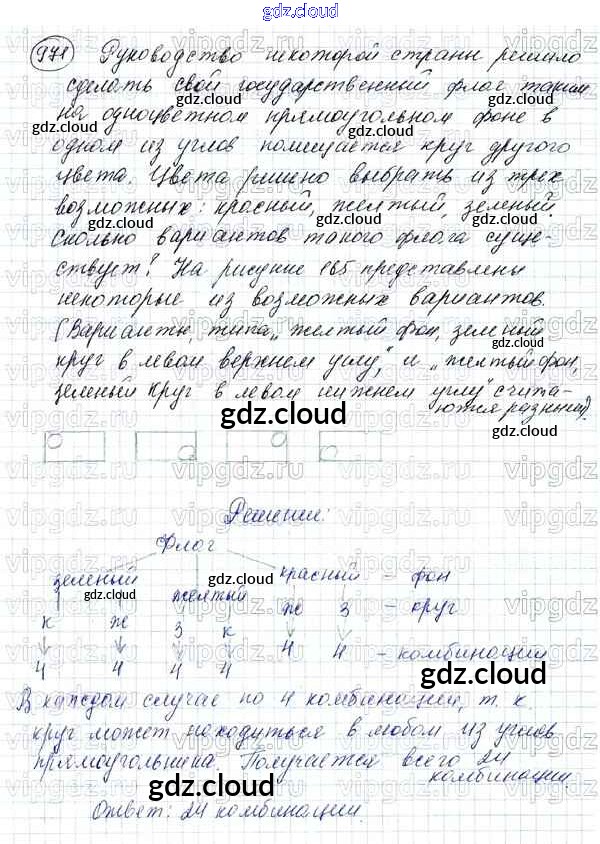 971
971 Руководство некоторой страны решило
сделать свой государственный флаг таким
на одноцветном прямоугольном фоне в
одном из углов помещается круг другого
цвета. Цвета решено выбрать из трех
возможных: красный, желтый, зеленый.
Сколько вариантов такого флага суще-
ствует? На рисунке 165 представлены
некоторые из возможных вариантов.
(Варианты, типа „желтый фон, зеленый
круг в левом верхнем углу", и „желтый фон,
зеленый круг в левом нижнем углу" счита-
ются разными).
Решение:
Флаг
зеленый желтый красный – фон
к ж з к ж з – круг
4 4 4 4 4 4 – комбинации
В каждом случае по 4 комбинаций, т. к.
круг может находиться в любом из углов
прямоугольника. Получается всего 24
комбинации.
Ответ: 24 комбинации.
gdz.cloud
vipgdz